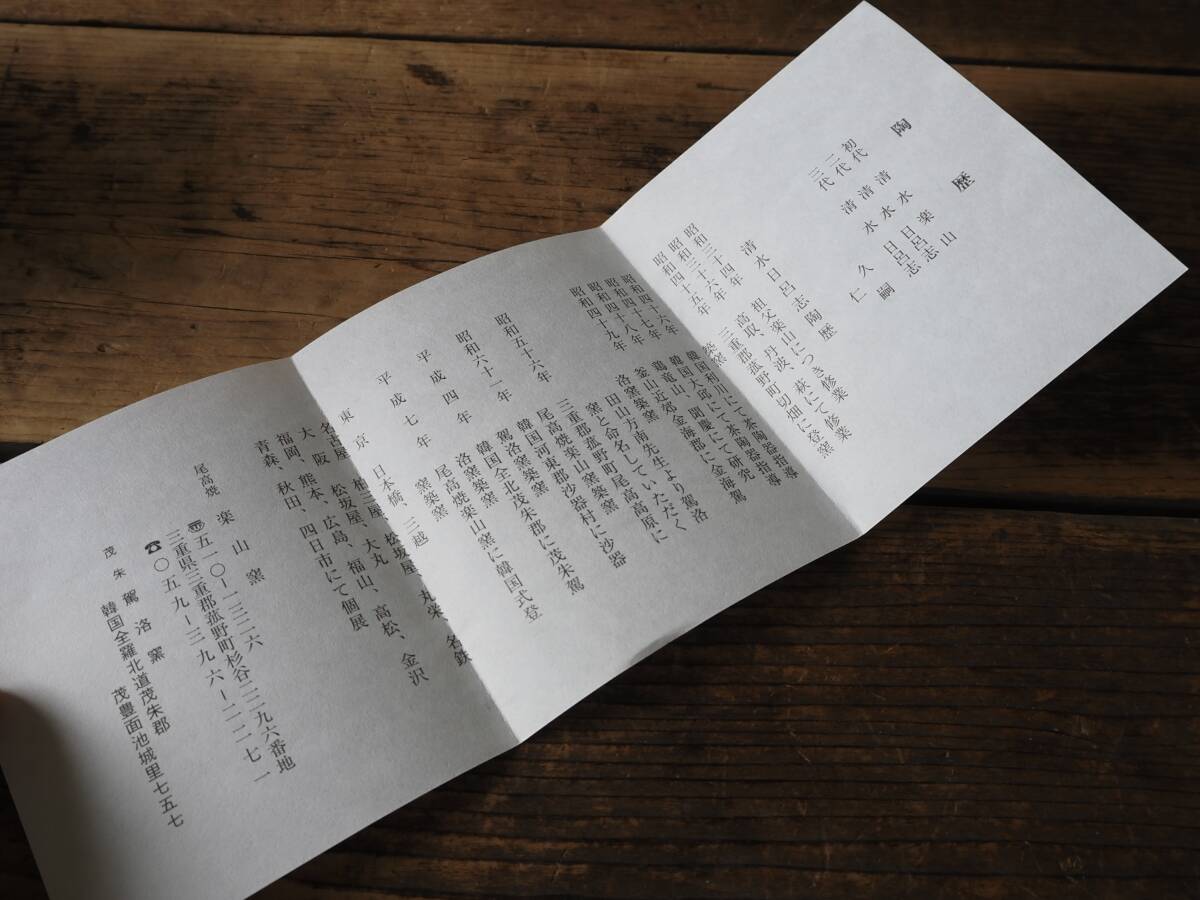 陶歴
初代 清水楽山
二代 清水日呂志
三代 清水
清水日呂志陶歴
昭和三十四年 祖父楽山につき修業
昭和三十六年 高取、丹波、萩にて修業
昭和四十五年 三重郡菰野町切畑に登窯
築窯
昭和四十六年 韓国利川にて茶陶器指導
昭和四十七年 韓国大邱にて茶陶器指導
昭和四十八年 鶏竜山、聞慶にて研究
昭和四十九年 釜山近郊金海郡に金海駕
洛窯築窯
田山方南先生より駕洛
窯と命名していただく
昭和五十六年 三重郡菰野町尾高高原に
尾高焼楽山窯築窯
昭和六十一年 韓国河東郡沙器村に沙器
駕洛窯築窯
平成四年 韓国全北茂朱郡に茂朱駕
洛窯築窯
平成七年 尾高焼楽山窯に韓国式登
窯築窯
東京、日本橋、三越
名古屋、松坂屋、丸栄、名鉄
大阪、三越、大丸、高松、金沢
福岡、熊本、広島、福山、
青森、秋田、四日市にて個展
尾高焼 楽山窯
〒五一〇ー一三二六
三重県三重郡菰野町杉谷二二九六番地
☎〇五九ー三九六ー二二七一
茂朱駕洛窯
韓国全羅北道茂朱郡
茂豊面池城里七五七